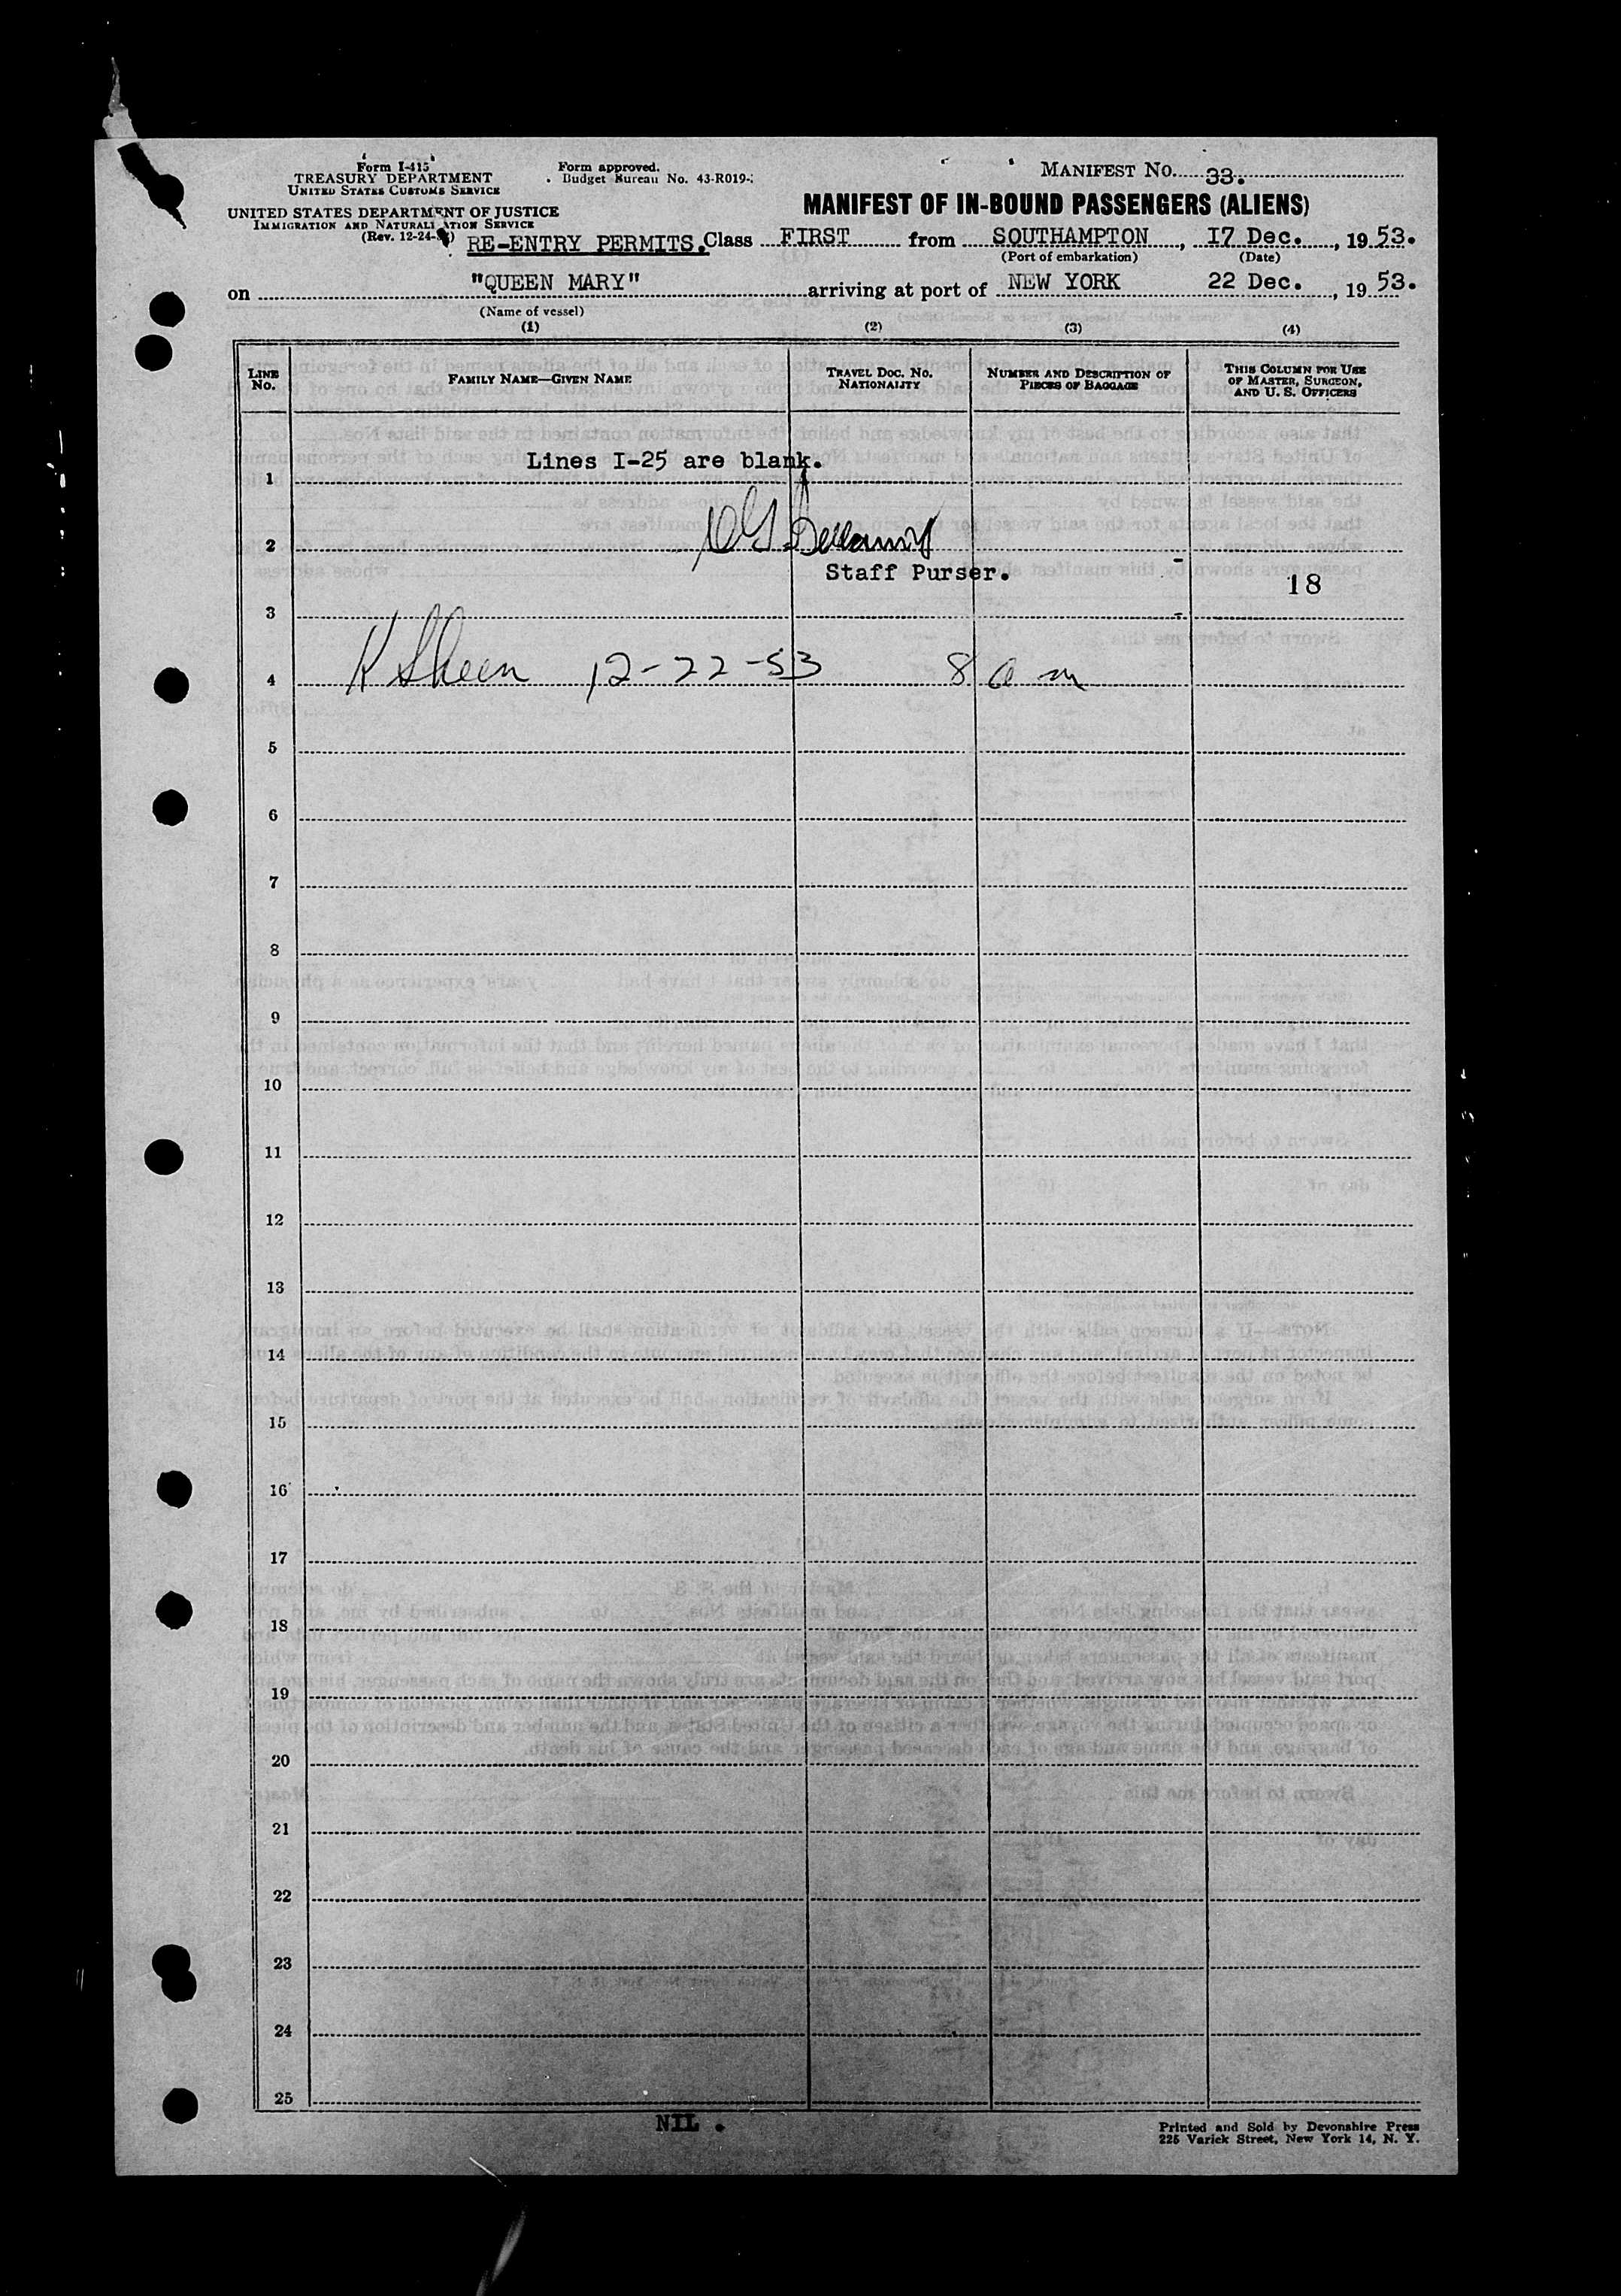 Form I-415
TREASURY DEPARTMENT
UNITED STATES CUSTOMS SERVICE
Form approved.
Budget Bureau No. 43-R019-
MANIFEST No. 33.
UNITED STATES DEPARTMENT OF JUSTICE
IMMIGRATION AND NATURALIZATION SERVICE
(Rev. 12-24-
MANIFEST OF IN-BOUND PASSENGERS (ALIENS)
RE-ENTRY PERMITS. Class FIRST from SOUTHAMPTON, I7 Dec., 19 53.
(Port of embarkation) (Date)
on "QUEEN MARY" arriving at port of NEW YORK 22 Dec., 19 53.
(Name of vessel)
(1) (2) (3) (4)
LINE No.
FAMILY NAME—GIVEN NAME
TRAVEL DOC. NO. NATIONALITY
NUMBER AND DESCRIPTION OF PIECES OF BAGGAGE
THIS COLUMN FOR USE OF MASTER, SURGEON, AND U. S. OFFICERS
Lines I-25 are blank.
1
2
Staff Purser.
18
3
4 K Sheen 12-22-53 8 a m
5
6
7
8
9
10
11
12
13
14
15
16
17
18
19
20
21
22
23
24
25
NIL .
Printed and Sold by Devonshire Press
225 Varick Street, New York 14, N. Y.